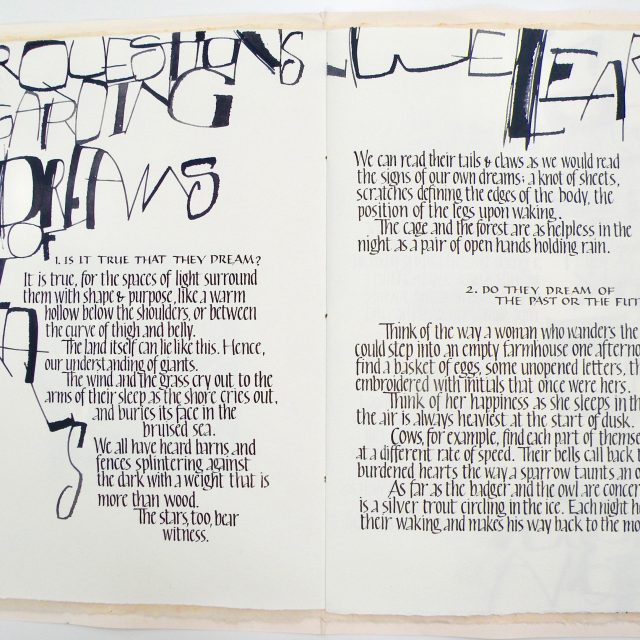 R QUESTIONS
GARDING
DREAMS
OF
1. IS IT TRUE THAT THEY DREAM?
It is true, for the spaces of light surround
them with shape & purpose, like a warm
hollow below the shoulders, or between
the curve of thigh and belly.
The land itself can lie like this. Hence,
our understanding of giants.
The wind and the grass cry out to the
arms of their sleep as the shore cries out,
and buries its face in the
bruised sea.
We all have heard barns and
fences splintering against
the dark with a weight that is
more than wood.
The stars, too, bear
witness.
WE LEAR
We can read their tails & claws as we would read
the signs of our own dreams; a knot of sheets,
scratches defining the edges of the body, the
position of the legs upon waking.
The cage and the forest are as helpless in the
night as a pair of open hands holding rain.
2. DO THEY DREAM OF
THE PAST OR THE FUT
Think of the way a woman who wanders the
could step into an empty farmhouse one afterno
find a basket of eggs, some unopened letters, th
embroidered with initials that once were hers.
Think of her happiness as she sleeps in th
the air is always heaviest at the start of dusk.
Cows, for example, find each part of themse
at a different rate of speed. Their bells call back t
burdened hearts the way a sparrow taunts an o
As far as the badger and the owl are concer
is a silver trout circling in the ice. Each night he
their waking and makes his way back to the mo